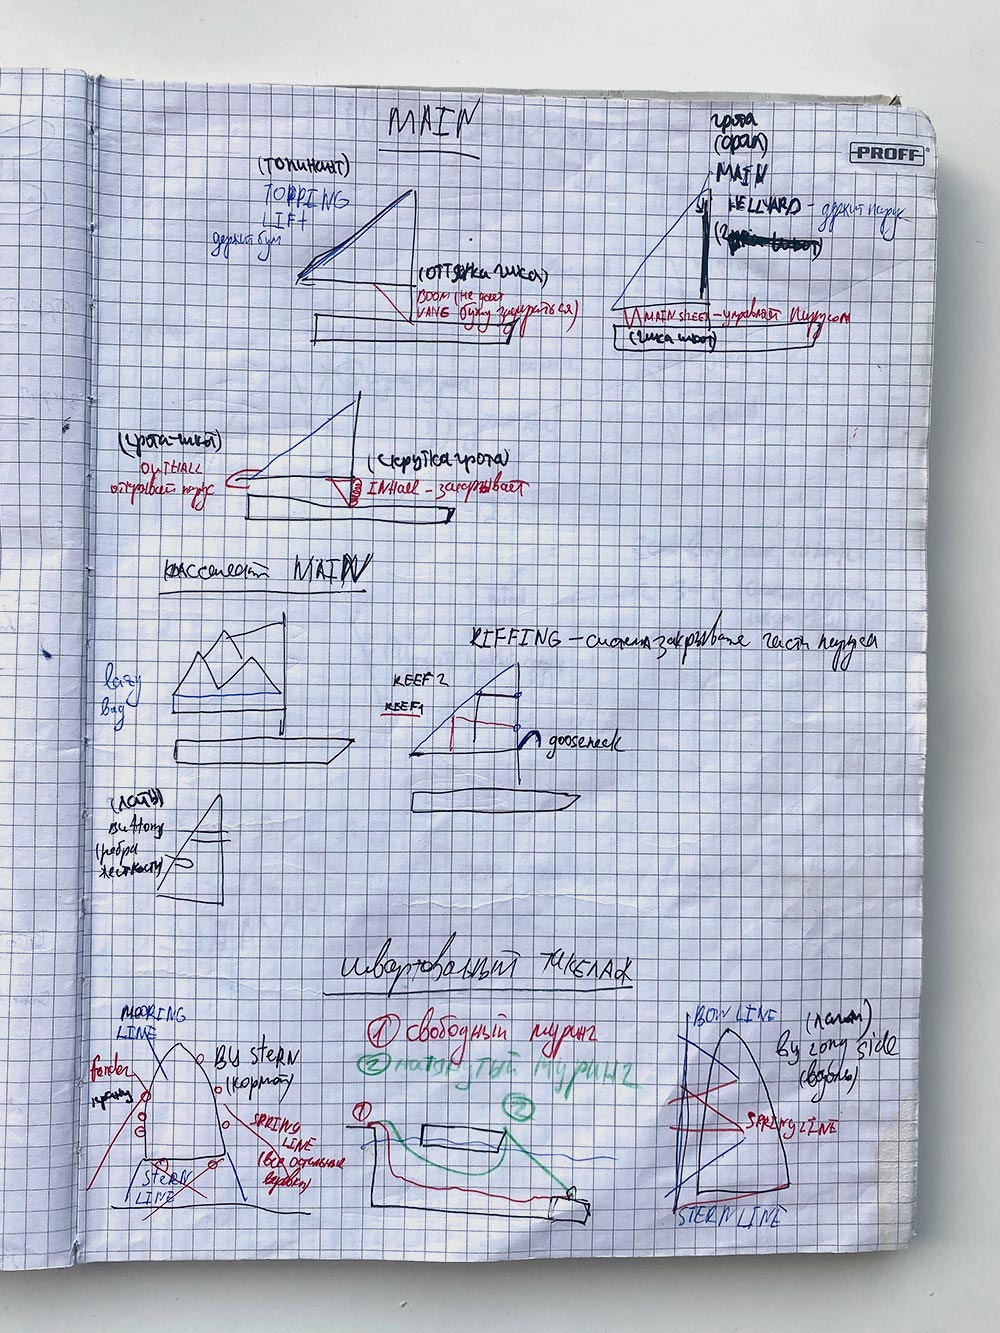 MAIN
PROFF
(топинант)
TOPPING
LIFT
держит бум
(оттяжка гика)
BOOM (не дает
VANG буму задираться)
грота
(фал)
MAIN
HELLYARD - держит парус
MAINSHEET - управляет парусом
(гика шкот)
(грота-шкот)
OUTHALL
открывает парус
(скрутка грота)
INHALL - закрывает
классический MAIN
lazy
bag
RIFFING - система закрывания части паруса
REEF 2
REEF 1
gooseneck
(латы)
Buttons
(ребра
жесткости)
швартовальный такелаж
MOORING
LINE
fender
кранец
BY STERN
(кормой)
SPRING
LINE
(все остальные
веревки)
STERN
LINE
① свободный муринг
② натянутый муринг
①
②
BOW LINE
(лагом)
By long side
(вдоль)
SPRING LINE
STERN LINE